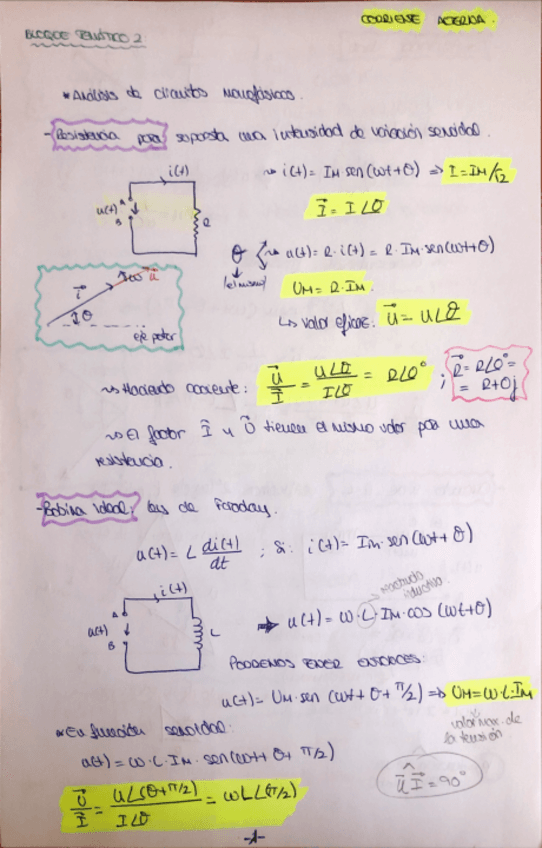 CORRIENTE ALTERNA.
BLOQUE TEMÁTICO 2:
* Análisis de circuitos Monofásicos.
- Resistencia pura, supuesta una intensidad de variación senoidal.
i(t)
u(t) A B R
i(t) = IM sen(ωt+θ) ⇒ I = IM/√2
I⃗ = I∠θ
θ u(t) = R·i(t) = R·IM·sen(ωt+θ)
(el mismo)
UM = R·IM.
↳ valor eficaz: u⃗ = U∠θ
i⃗ ω u⃗
θ
eje polar
↝ Haciendo cociente: U⃗/I⃗ = U∠θ/I∠θ = R∠0° ; R⃗ = R∠0° = R+0j
↝ El fasor I⃗ y U⃗ tienen el mismo valor para una
resistencia.
- Bobina ideal, ley de Faraday.
u(t) = L di(t)/dt ; Si: i(t) = Im·sen(ωt+θ)
i(t)
u(t) A B L
inductiva.
⇒ u(t) = ω·L·IM·cos(ωt+θ)
PODEMOS TENER ENTONCES:
u(t) = UM·sen(ωt+θ+π/2) ⇒ UM = ω·L·IM
valor max. de
la tensión
* En función senoidal:
u(t) = ω·L·IM·sen(ωt+θ+π/2)
U⃗/I⃗ = U∠(θ+π/2)/I∠θ = ωL∠(π/2)
u⃗ I⃗ = 90°
-1-